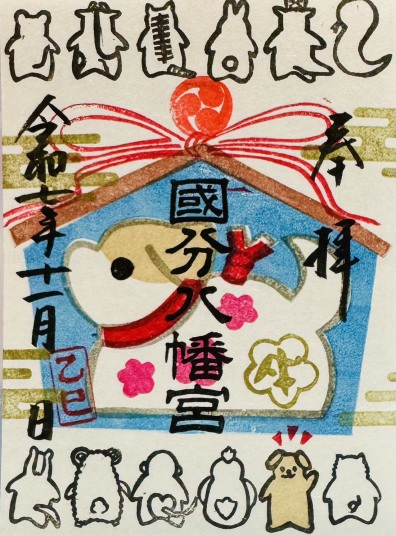 奉拝
國分八幡宮
令和七年十一月 日
乙巳
戌